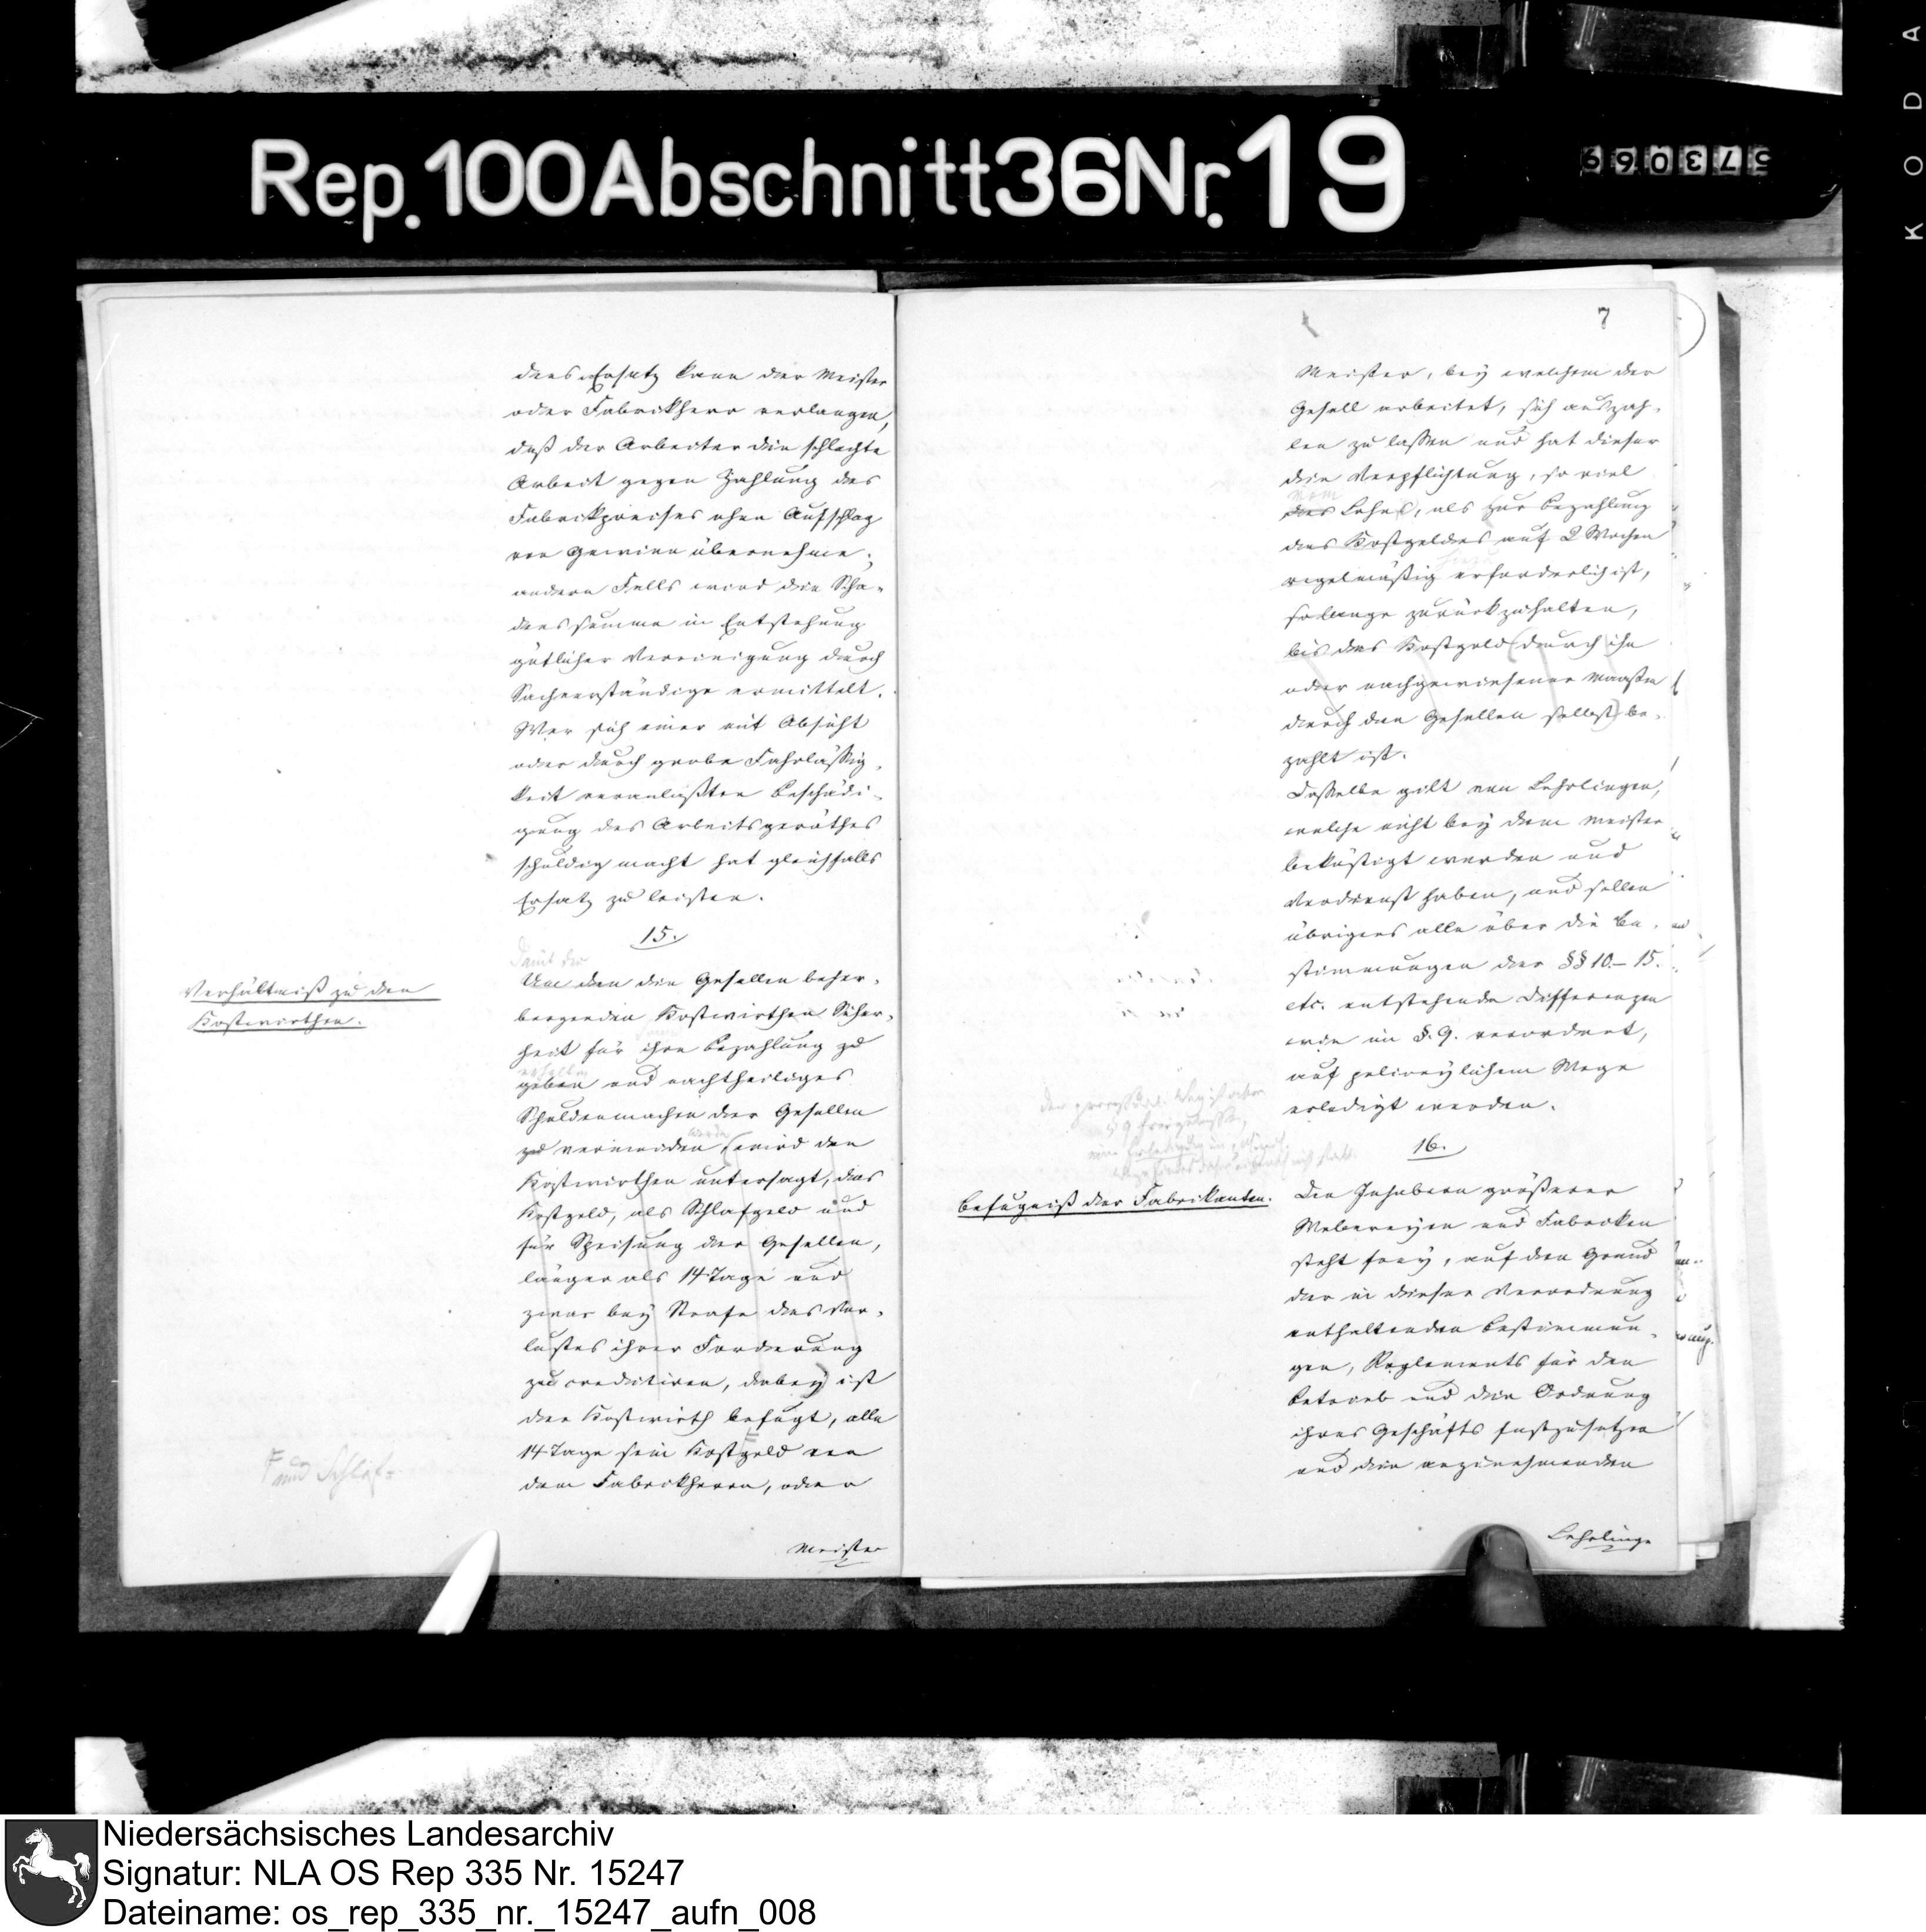 KODA
Rep. 100 Abschnitt 36 Nr. 19
573069
dens Ersatz kann der Meister
oder Fabrikherr verlangen,
daß der Arbeiter die schlechte
Arbeit gegen Zahlung des
Fabrikpreises ohne Aufschlag
von Gewinn übernehme;
andern Falls wird die Scha-
denssumme in Entstehung
gütlicher Vereinigung durch
Sachverständige ermittelt.
Wer sich einer mit Absicht
oder durch grobe Fahrlässig-
keit veranlaßten Beschädi-
gung des Arbeitsgeräthes
schuldig macht hat gleichfalls
Ersatz zu leisten.
15.
Damit der
Verhältniß zu den
Kostwirthen.
Um den die Gesellen beher-
bergenden Kostwirthen Sicher-
heit für ihre Bezahlung zu
erhalten
geben und nachtheiliges
Schuldenmachen der Gesellen
werde
zu vermeiden (wird den
Kostwirthen untersagt, das
Kostgeld, als Schlafgeld und
für Speisung der Gesellen,
länger als 14 Tage und
zwar bey Strafe des Ver-
lustes ihrer Forderung
zu creditiren, dabey) ist
der Kostwirth befugt, alle
14 Tage sein Kostgeld von
F und Schlaf-
dem Fabrikherrn, oder
Meister
7
Meister, bey welchem der
Gesell arbeitet, sich auszah-
len zu lassen und hat dieser
die Verpflichtung, so viel
vom
des Lohns, als zur Bezahlung
des Kostgeldes auf 2 Wochen
regelmäßig erforderlich ist,
solange zurückzuhalten,
bis das Kostgeld (durch ihn
oder nachgewiesener maaßen
durch den Gesellen selbst) be-
zahlt ist.
Dasselbe gilt von Lehrlingen,
welche nicht bey dem Meister
beköstigt werden und
Verdienst haben, und sollen
übrigens alle über die Be-
stimmungen der §§ 10–15.
etc. entstehende Differenzen
wie im §. 9. verordnet,
auf polizeylichem Wege
erledigt werden.
16.
Befugniß der Fabrikanten.
Den Inhabern größerer
Webereyen und Fabriken
steht frey, auf den Grund
der in dieser Verordnung
enthaltenden Bestimmun-
gen, Reglements für den
Betrieb und die Ordnung
ihres Geschäfts festzusetzen
und die anzunehmenden
Lehrlinge
Niedersächsisches Landesarchiv
Signatur: NLA OS Rep 335 Nr. 15247
Dateiname: os_rep_335_nr._15247_aufn_008